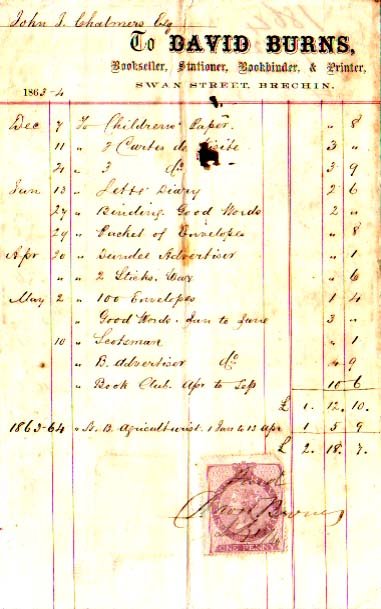 John I. Chalmers Esq
To DAVID BURNS,
Bookseller, Stationer, Bookbinder, & Printer,
SWAN STREET, BRECHIN.
1863-4
Dec 7 To Childrens Paper. " 8
11 " 2 Cartes de Visite 3 "
21 " 3 do 3 9
Jan 13 " Letts Diary 2 6
27 " Binding Good Words 2 "
29 " Packet of Envelopes " 8
Apr 20 " Dundee Advertiser " 1
" " 2 Sticks Wax " 6
May 2 " 100 Envelopes 1 4
Good Words. Jan to June 3 "
10 " Scotsman " 1
" B. Advertiser do 4 9
" Book Club Apr to Sep 10 6
£ 1. 12. 10.
1863-64 " N. B. Agriculturist. 1 Jan to 13 Apr 1 5 9
£ 2. 18. 7.
David Burns
ONE PENNY